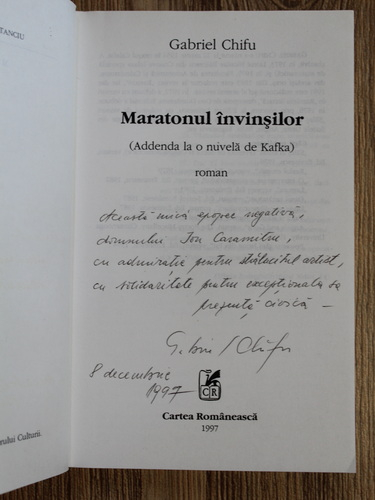 TANCIU
Gabriel Chifu
Maratonul învinşilor
(Addenda la o nuvelă de Kafka)
roman
Această mică epopee negativă,
domnului Ion Caramitru,
cu admiraţie pentru strălucitul artist,
cu solidaritate pentru excepţionala sa
prezenţă civică —
Gabriel Chifu
8 decembrie
1997
CR
Cartea Românească
1997
rului Culturii.